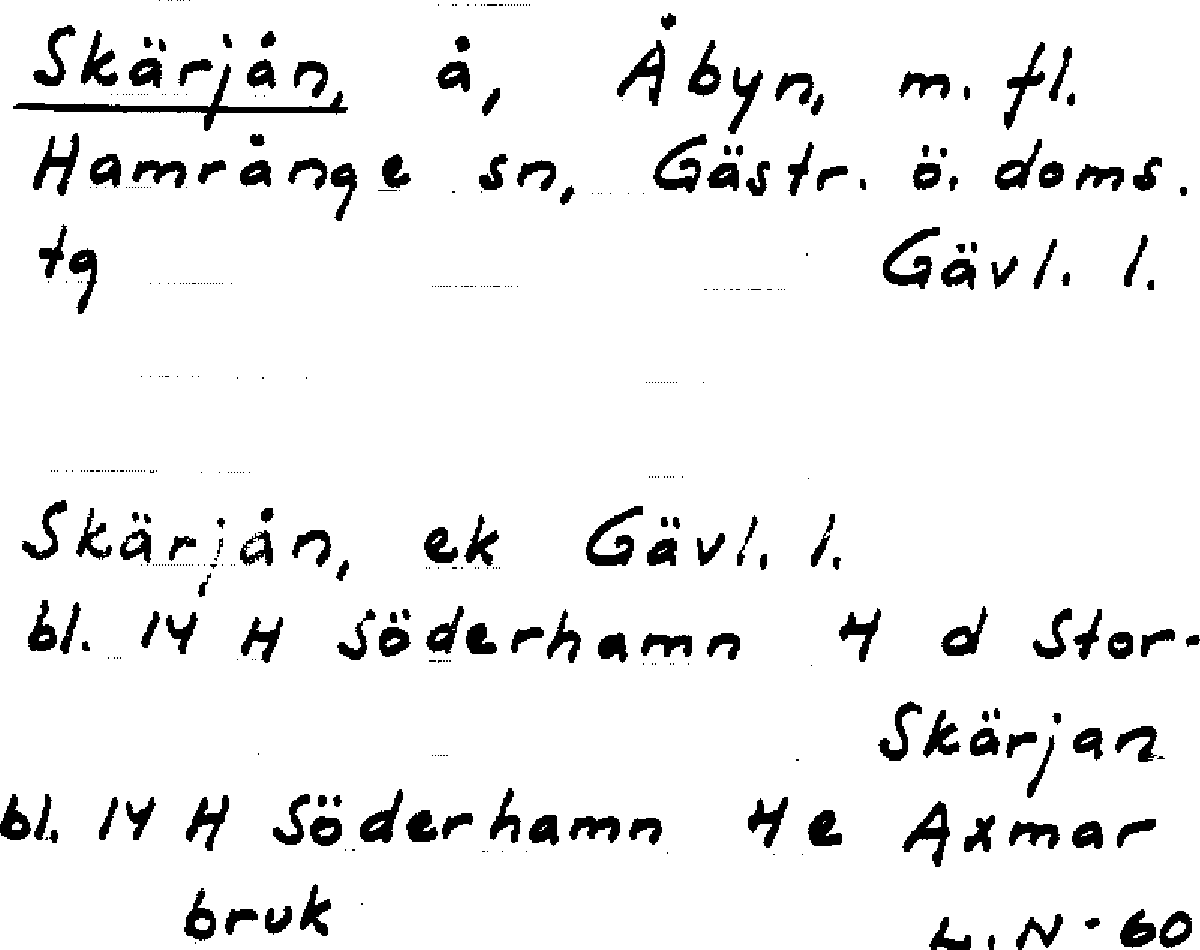 Skärjån, å, Åbyn, m. fl.
Hamrånge sn, Gästr. ö. doms.
tg Gävl. l.
Skärjån, ek Gävl. l.
bl. 14 H Söderhamn 4 d Stor-
Skärjan
bl. 14 H Söderhamn 4e Axmar
bruk L. N - 60